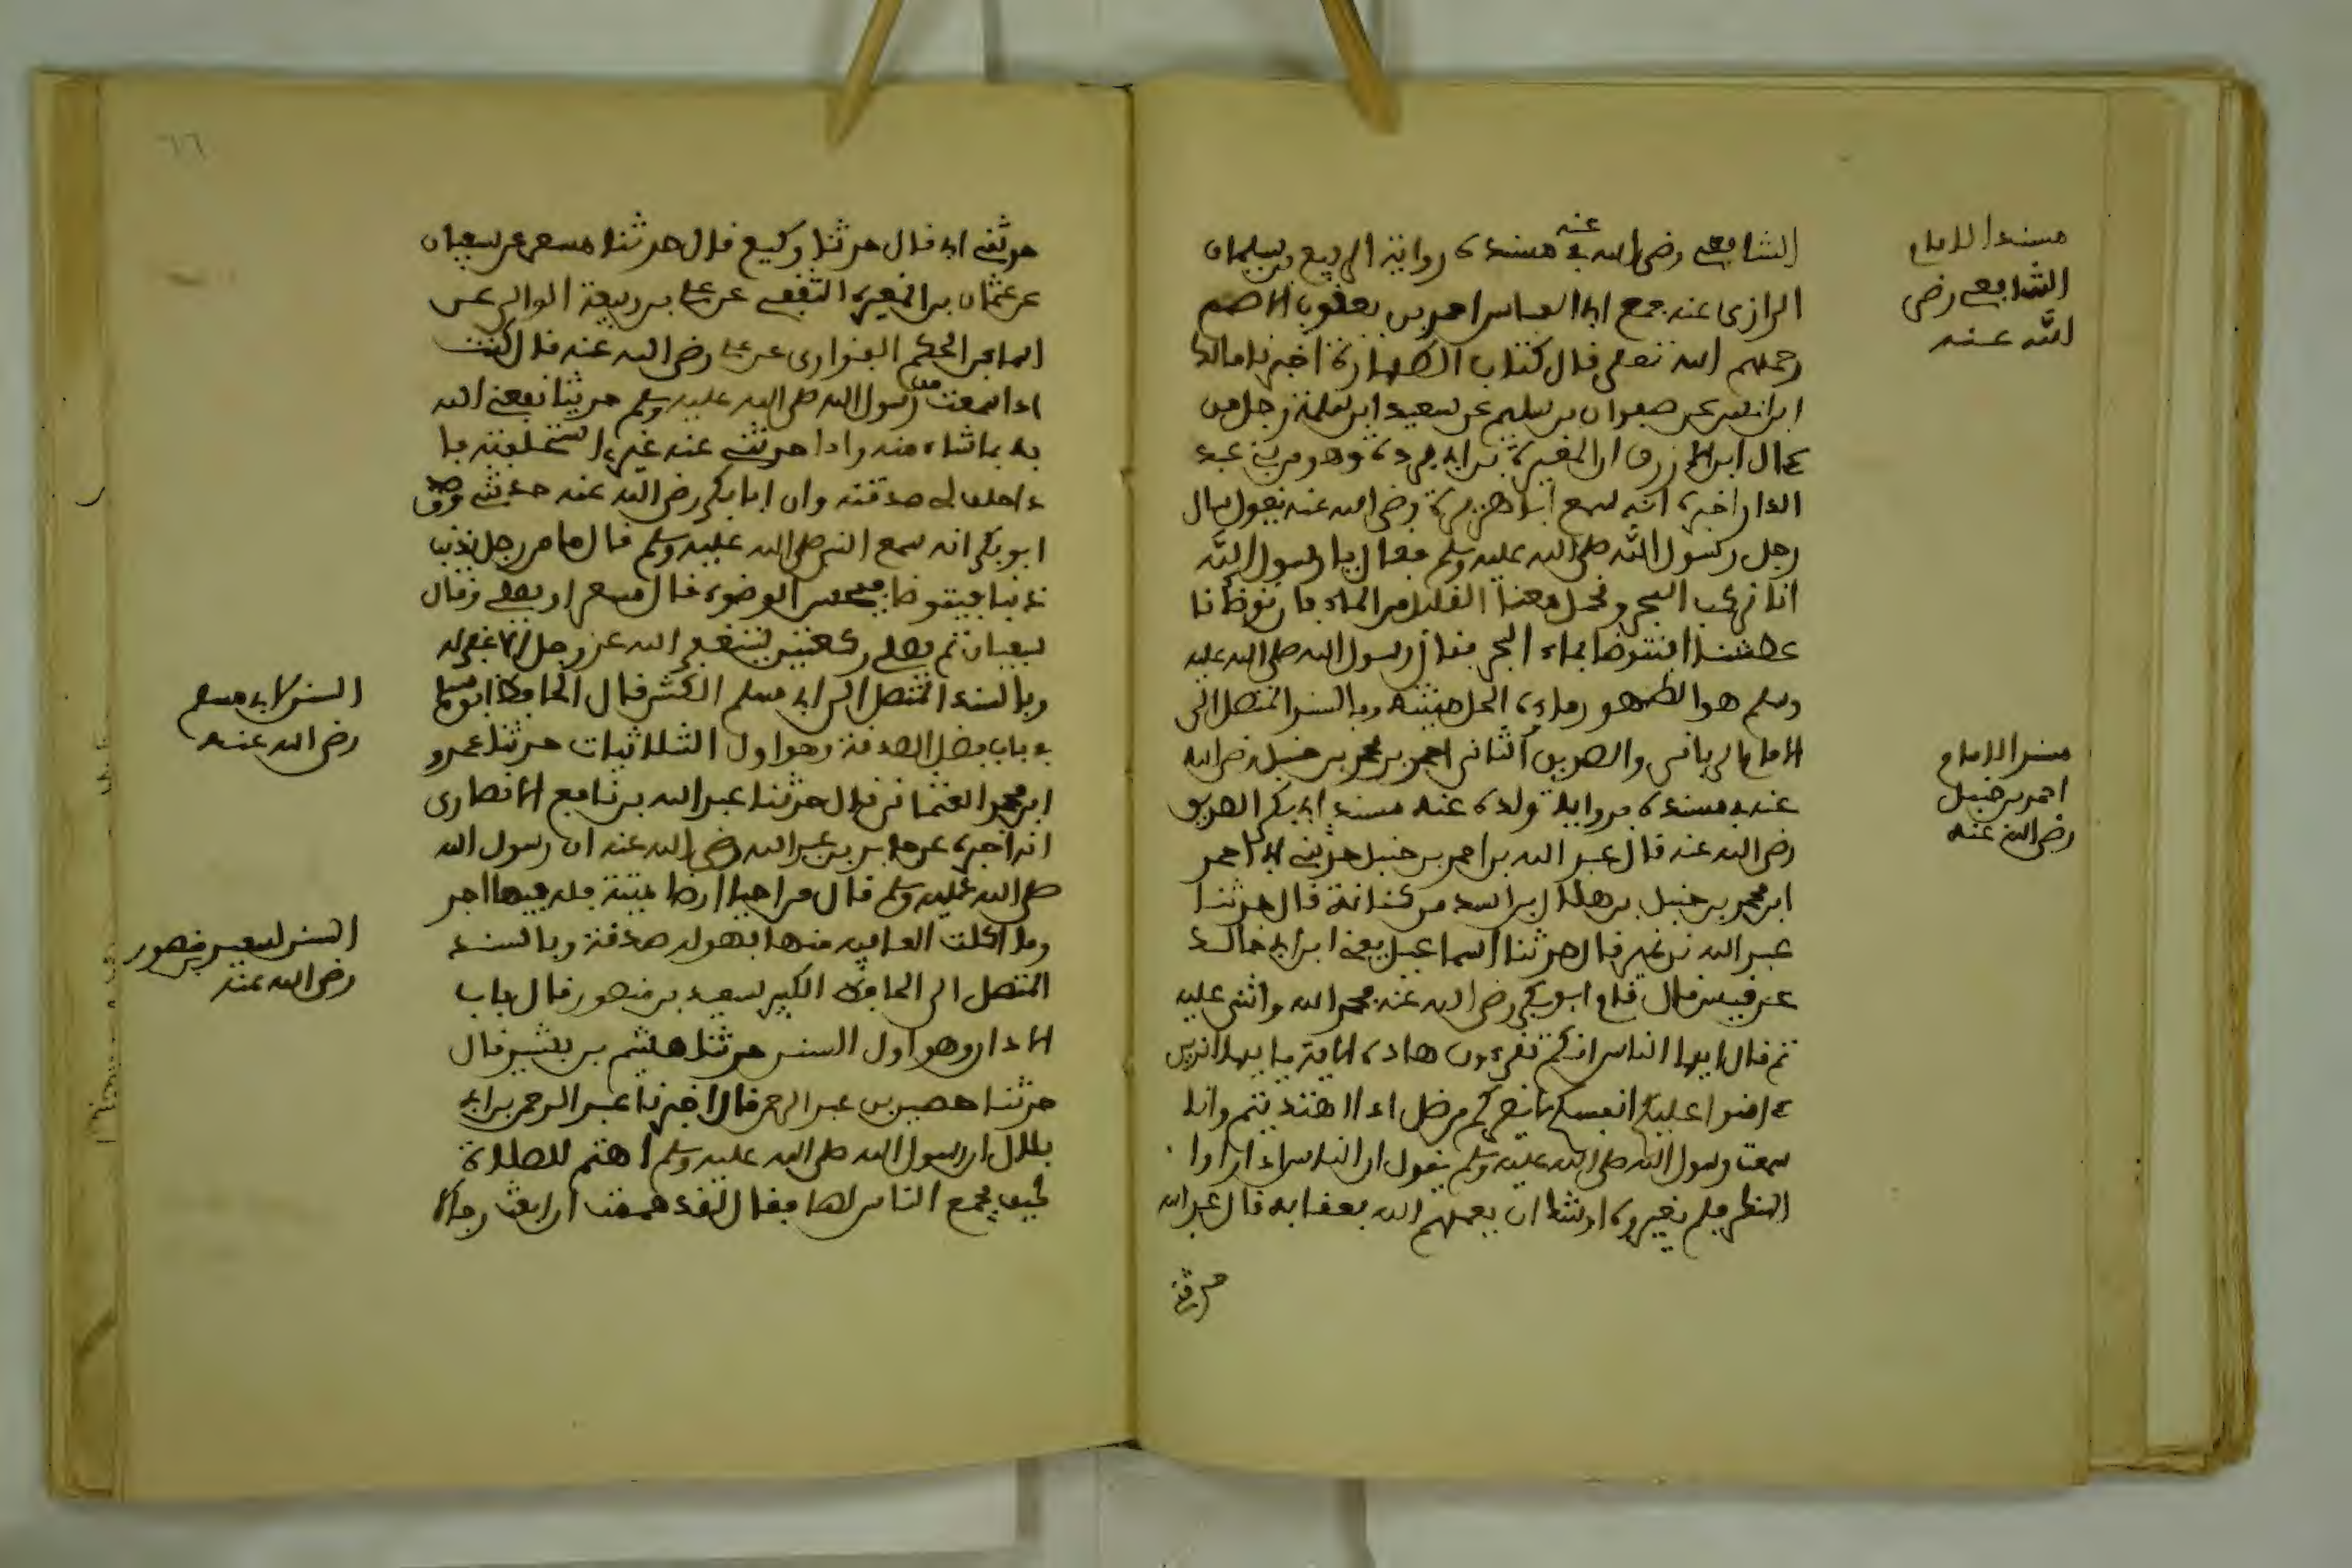 مسند الامام
الشافعي رضي
الله عنه
الشافعي رضي الله عنه في مسنده رواية الربيع بن سليمان
الرازي عنه جمع ابي العباس احمد بن يعقوب الاصم
رحمهم الله تعلى قال كتاب الطهارة اخبرنا مالك
ابن انس عن صفوان بن سليم عن سعيد ابن سلمة رجل من
ءال ابن الازرق ان المغيرة بن ابي بردة وهو من بني عبد
الدار اخبره انه سمع ابا هريرة رضي الله عنه يقول سال
رجل رسول الله صلى الله عليه وسلم فقال يا رسول الله
انا نركب البحر ونحمل معنا القليل من الماء فان توضانا
عطشنا افنتوضا بماء البحر فقال رسول الله صلى الله عليه
وسلم هو الطهور ماؤه الحل ميتته وبالسند المتصل الى
مسند الامام
احمد بن حنبل
رضي الله عنه
الامام الرباني والصديق الثاني احمد بن محمد بن حنبل رضي الله
عنه في مسنده برواية ولده عنه مسند ابي بكر الصديق
رضي الله عنه قال عبد الله بن احمد بن حنبل حدثني ابي احمد
ابن محمد بن حنبل بن هلال بن اسد من كتابه قال حدثنا
عبد الله بن نمير قال حدثنا اسماعيل يعني ابن ابي خالد
عن قيس قال قام ابو بكر رضي الله عنه فحمد الله واثنى عليه
ثم قال ايها الناس انكم تقرءون هاده الاية يا ايها الذين
ءامنوا عليكم انفسكم لا يضركم من ضل اذا اهتديتم وانا
سمعت رسول الله صلى الله عليه وسلم يقول ان الناس اذا راوا
المنكر فلم يغيروه اوشك ان يعمهم الله بعقابه قال عبد الله
حدثني
٦٦
حدثني ابي قال حدثنا وكيع قال حدثنا مسعر عن سفيان
عن عثمان بن المغيرة الثقفي عن علي بن ربيعة الوالي عن
اسما بن الحكم الفزاري عن علي رضي الله عنه قال كنت
اذا سمعت من رسول الله صلى الله عليه وسلم حديثا نفعني الله
به بما شاء منه واذا حدثني عنه غيره استحلفته فا
ذا حلف لي صدقته وان ابا بكر رضي الله عنه حدثني وصدق
ابو بكر انه سمع النبي صلى الله عليه وسلم قال ما من رجل يذنب
ذنبا فيتوضا فيحسن الوضوء قال مسعر او يصلي وقال
سفيان ثم يصلي ركعتين يستغفر الله عز وجل الا غفر له
السنن لابي مسلم
رضي الله عنه
وبالسند المتصل الى ابي مسلم الكشي قال الحافظ ابو مسلم
في باب فضل الصدقة وهو اول الثلاثيات حدثنا عمرو
ابن محمد العثماني قال حدثنا عبد الله بن نافع الانصاري
انه اخبره عن جابر بن عبد الله رضي الله عنه ان رسول الله
صلى الله عليه وسلم قال من احيا ارضا ميتة فله فيها اجر
وما اكلت العافية منها فهو له صدقة وبالسند
السنن لسعيد بن منصور
رضي الله عنه
المتصل الى الحافظ الكبير سعيد بن منصور قال باب
الاذان وهو اول السنن حدثنا هشيم بن بشير قال
حدثنا حصين بن عبد الرحمن قال اخبرنا عبد الرحمن بن ابي
بلال ان رسول الله صلى الله عليه وسلم اهتم للصلاة
كيف يجمع الناس لها فقال لقد هممت ان ابعث رجالا